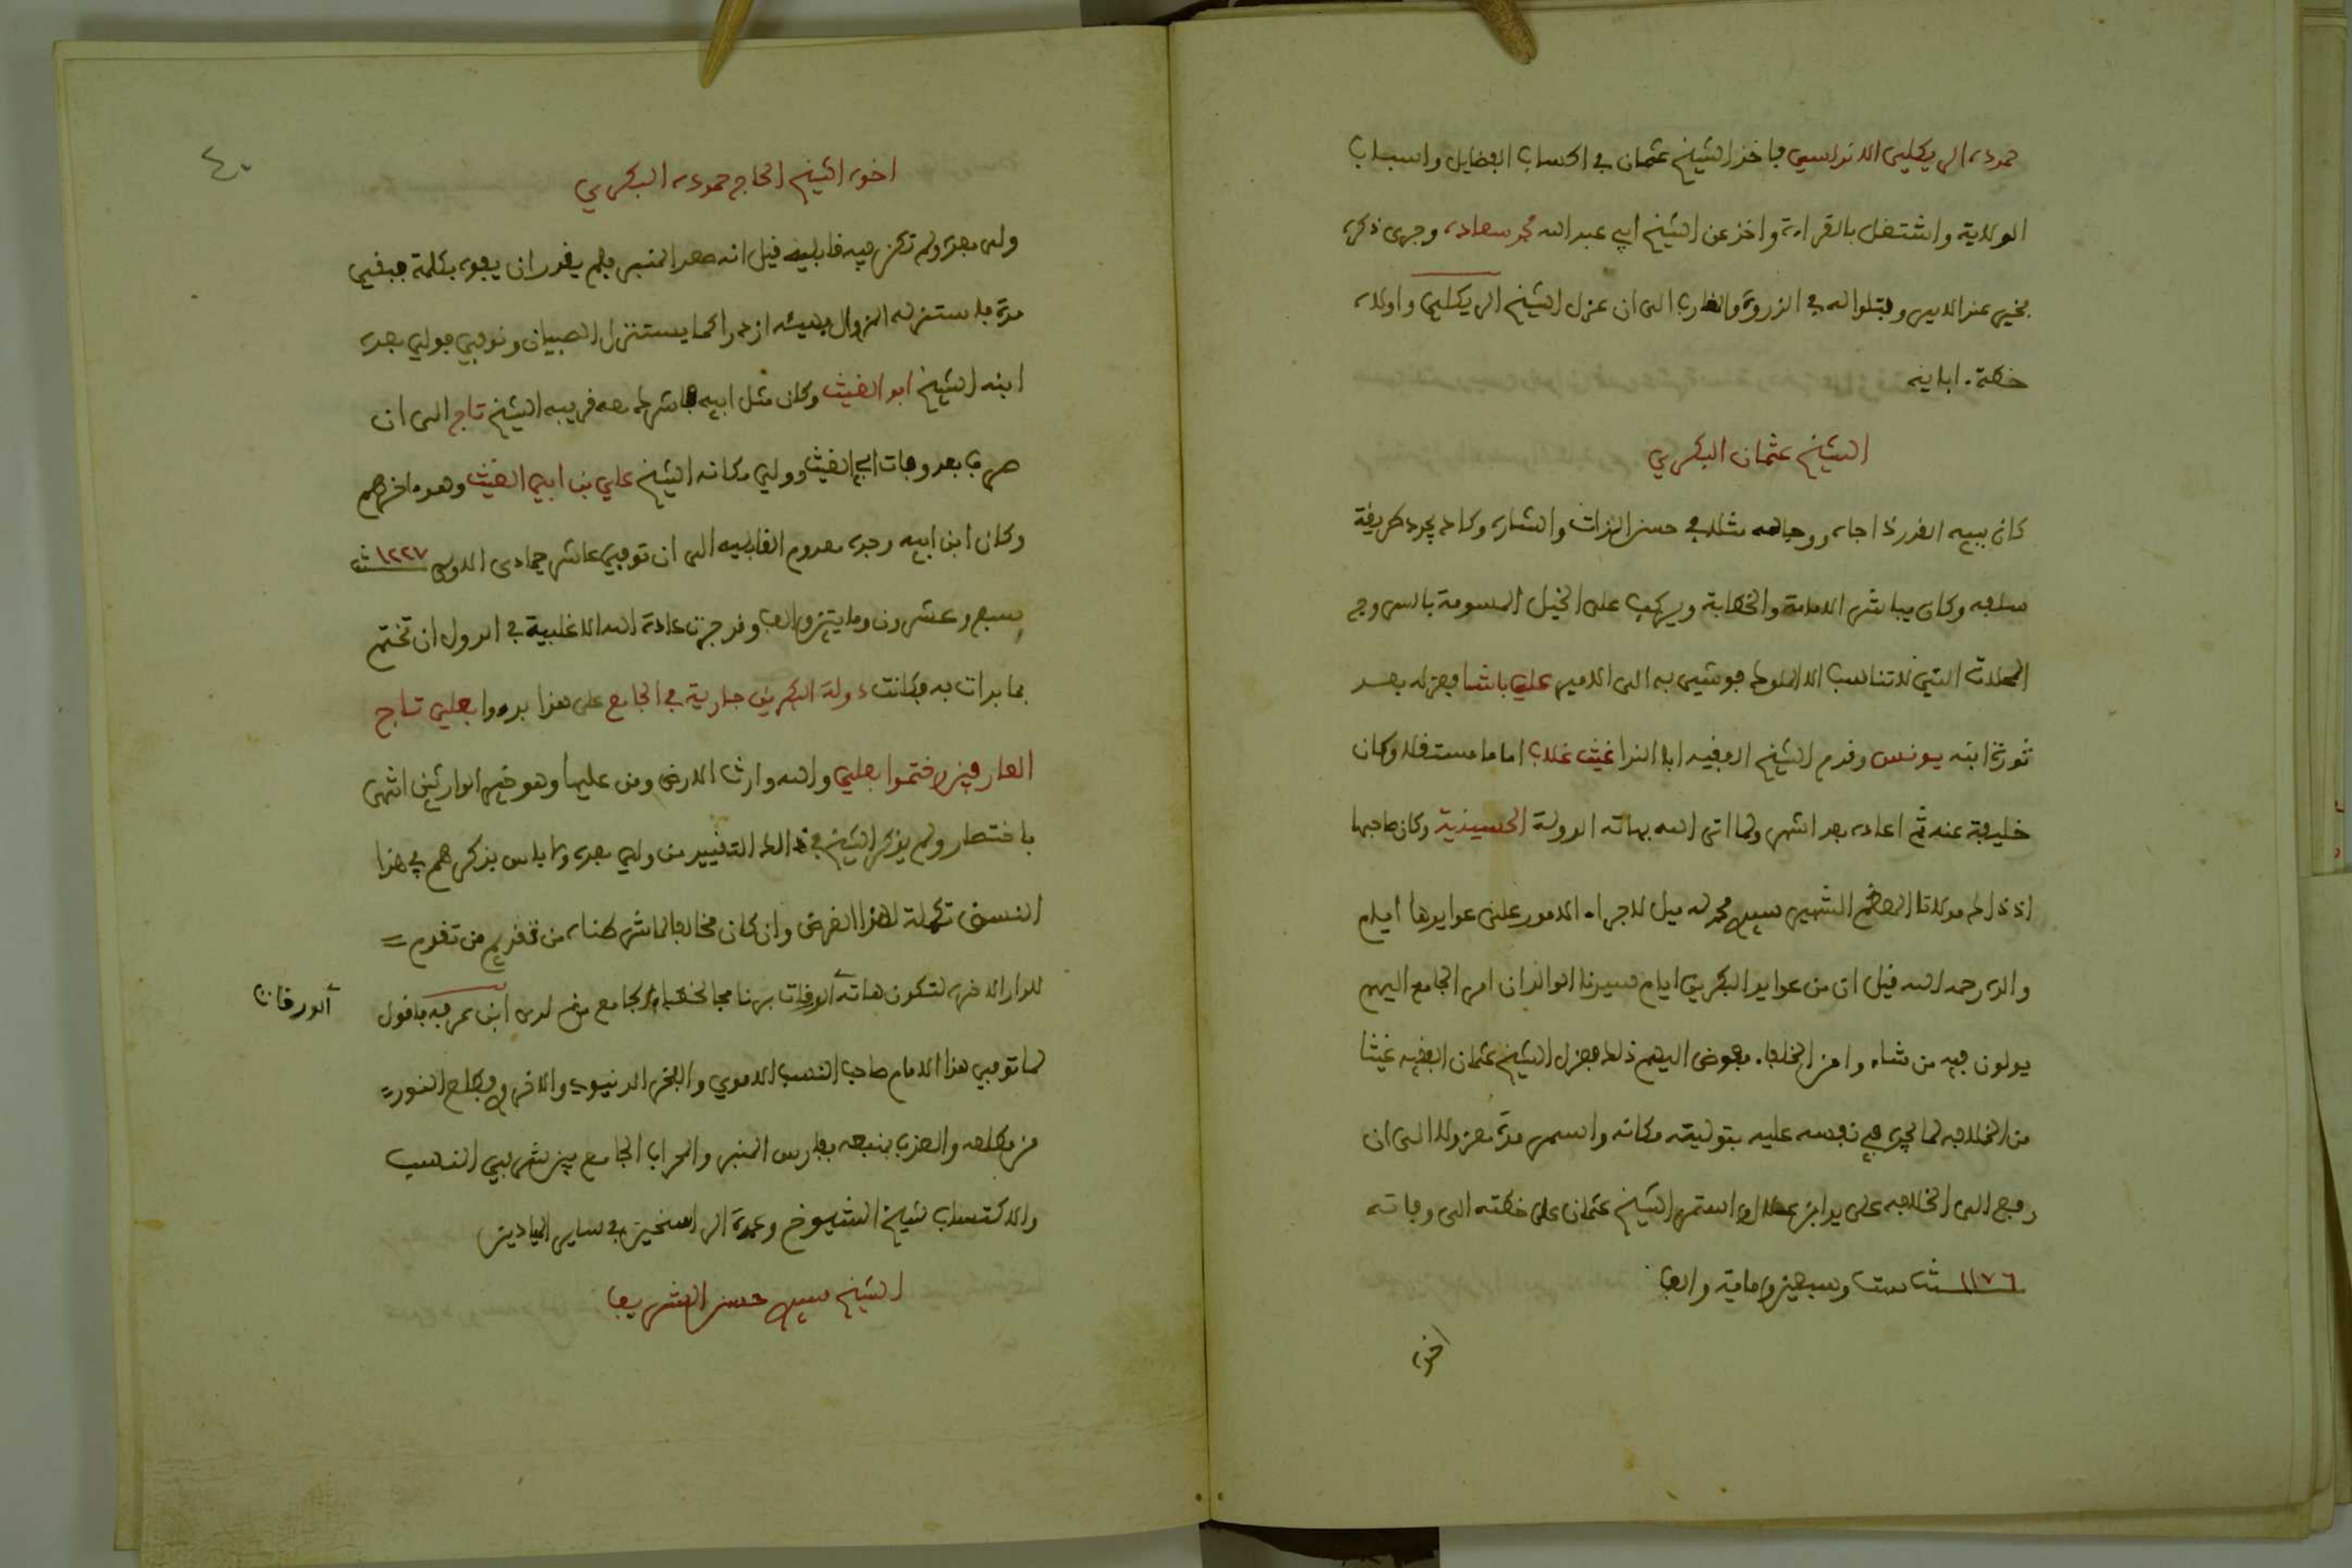 حمودة الريكلي الاندلسي فاخذ الشيخ عثمان في اكتساب الفضايل واسباب
الولاية واشتغل بالقراءة واخذ عن الشيخ ابي عبد الله محمد سعادة وجرى ذكره
بخير عند الامير وفتلوا له في الذروة والغارب الى ان عزل الشيخ الريكلي واولاه
خطة ابايه
الشيخ عثمان البكري
كان نبيه القدر ذا جاه ووجاهه مثلا في حسن الذات والشارة وكاد يجدد طريقة
سلفه وكان يباشر الامامة والخطابة ويركب على الخيل المسومة بالسروج
المحلات التي لا تناسب الا الملوك فوشي به الى الامير علي باشا فعزله بعد
ثورة ابنه يونس وقدم الشيخ الفقيه ابا الندا غيث غلاب اماما مستقلا وكان
خليفة عنه ثم اعاده بعد اشهر ولما اتى الله بهاته الدولة الحسينية وكان صاحبها
اذ ذاك مولانا المعظم الشهير سيدي محمد له ميل لاجراء الامور على عوايدها ايام
والده رحمه الله قيل ان من عوايد البكريين ايام سيدنا الوالد ان امر الجامع اليهم
يولون فيه من شاءوا من الخلفا ففوض اليهم ذلك فعزل الشيخ عثمان الفقيه غيثا
من الخلافه لما يجد في نفسه عليه بتوليته مكانه واستمر مدة معزولا الى ان
رجع الى الخلافه على يد ابن واستمر الشيخ عثمان على خطته الى وفاته
سنة ١١٧٦ ست وسبعين وماية والف
اخوه
٤٠
اخوه الشيخ الحاج حمودة البكري
ولي بعده ولم تكن فيه قابلية قيل انه صعد المنبر فلم يقدر ان يفوه بكلمة فبقي
مدة فاستنزله المزوال بهيئة ازدراء كما يستنزل الصبيان وتوفي فولي بعده
ابنه الشيخ ابو الغيث وكان مثل ابيه فاشرك معه قريبه الشيخ تاج الى ان
صرف بعد وفات ابي الغيث وولي مكانه الشيخ علي بن ابي الغيث وهو ءاخرهم
وكان ابن ابيه وجده معدوم القابليه الى ان توفي عاشر جمادى الاولى سنة ١٢٢٧
سبع وعشرون ومايتين والف وقد جرت عادة الله الاغلبية في الدول ان تختم
بما بدات به فكانت دولة البكريين جارية في الجامع على هذا بدءوا بعلي تاج
العارفين وختموا بعلي والله وارث الارض ومن عليها وهو خير الوارثين انتهى
باختصار ولم يذكر الشيخ في ذالك التقييد من ولي بعده ولا باس بذكرهم في هذا
النسق تكملة لهذا الغرض وان كان مخالفا لما شرطناه من تقديم من تقدم =
للدار الاخرة لتكون هاته الورقات برنامجا لخطباء الجامع من لدن ابن عرفه فاقول
الورقات
لما توفي هذا الامام صاحب النسب الاموي والفخر الدنيوي والاخروي وطلع النور =
من مطلعه والعذب بمنبعه فارس المنبر والمحراب الجامع بين شرفي النسب
والاكتساب شيخ الشيوخ وعمدة الراسخين في ساير الميادين
الشيخ سيدي حسن الشريف